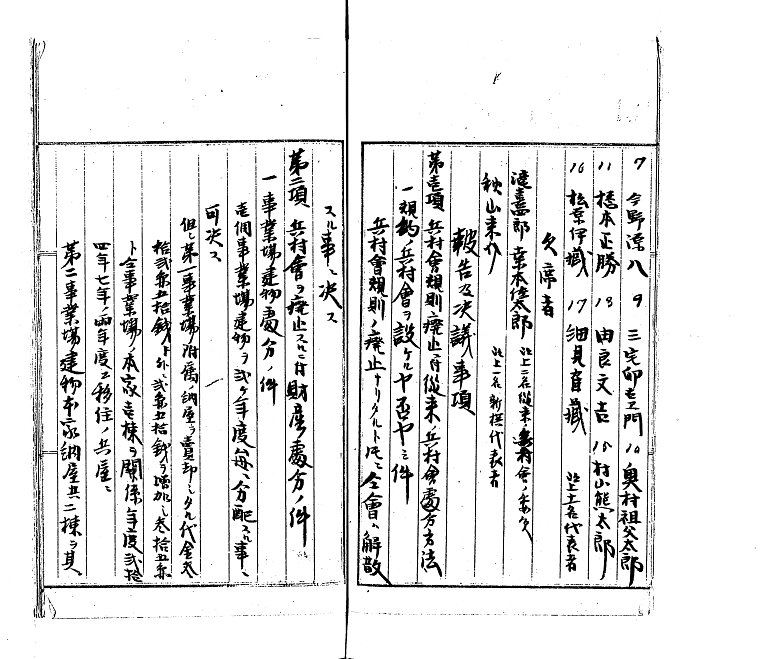 7 今野源八 9 三宅卯左ヱ門 10 奥村祖父太郎
11 橋本正勝 13 由良文吉 15 村山熊太郎
16 松原伊藏 17 細見音藏 以上十一名代表者
欠席者
秋山末 以上一名新撰代表者
報告及決議事項
第壱項 兵村會規則廢止ニ付從来ノ兵村會處分方法
一規約ノ兵村會ヲ設ケルヤ否ヤノ件
兵村會規則ノ廢止ナリタルト同時ニ仝會ハ解散
スル事ニ決ス
第二項 兵村會ヲ廢止スルニ付財産處分ノ件
一 事業場建物處分ノ件
壱個事業場建物ヲ弐ヶ年度毎ニ分配スル事ニ
可決ス
但シ第一事業場附属ノ納屋ヲ賣却シタル代金
拾弐円五拾銭ト外ニ弐円五拾銭ヲ増加シ
ト仝事業場ノ本家壱棟ヲ関係年度弐拾
四年七年ノ両年度移住ノ兵屋ニ
第二事業場建物本家納屋共二棟ヲ其